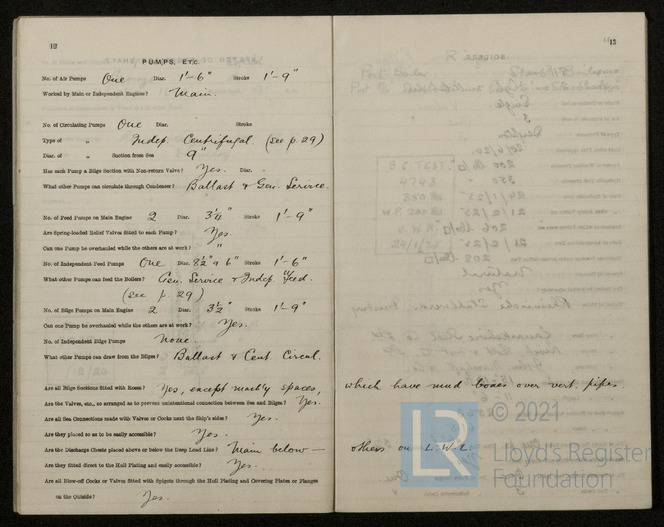 12
PUMPS, ETC.
No. of Air Pumps One Diar. 1'-6" Stroke 1'-9"
Worked by Main or Independent Engines? Main.
No. of Circulating Pumps One Diar. Stroke
Type of „ Indep. Centrifugal. (see p. 29)
Diar. of „ Suction from Sea 9"
Has each Pump a Bilge Suction with Non-return Valve? Yes. Diar.
What other Pumps can circulate through Condenser? Ballast & Gen. Service.
No. of Feed Pumps on Main Engine 2 Diar. 3¼" Stroke 1'-9"
Are Spring-loaded Relief Valves fitted to each Pump? Yes.
Can one Pump be overhauled while the others are at work? "
No. of Independent Feed Pumps One Diar. 8½" & 6" Stroke 1'-6"
What other Pumps can feed the Boilers? Gen. Service & Indep. Feed.
(see p. 29)
No. of Bilge Pumps on Main Engine 2 Diar. 3½" Stroke 1'-9"
Can one Pump be overhauled while the others are at work? Yes.
No. of Independent Bilge Pumps None.
What other Pumps can draw from the Bilges? Ballast & Cent Circul.
Are all Bilge Suctions fitted with Roses? Yes, except mach'y spaces, which have mud boxes over vert. pipes.
Are the Valves, etc., so arranged as to prevent unintentional connection between Sea and Bilges? Yes.
Are all Sea Connections made with Valves or Cocks next the Ship's sides? Yes.
Are they placed so as to be easily accessible? Yes.
Are the Discharge Chests placed above or below the Deep Load Line? Main below — others on L.W.L.
Are they fitted direct to the Hull Plating and easily accessible? Yes.
Are all Blow-off Cocks or Valves fitted with Spigots through the Hull Plating and Covering Plates or Flanges
on the Outside? Yes.
13
LR © 2021
Lloyd's Register
Foundation